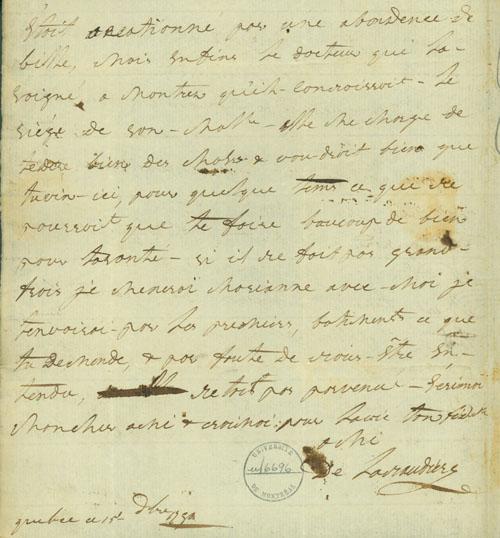 Etoit occationné par une abondence de
bille, Mais Enfins Le docteur qui La
soigné, a Montrer qu'il Connoissoit Le
siége de son Malle elle Me charge de
te dire bien des choses & voudroit bien que
tu vin ici, pour quelque tems ce qui ne
pourroit que te faire baucoup de bien
pour ta santé si il ne fait pas grand
frois je Menerai Marianne avec Moi je
t'envoirai par Les premiers, batiments ce que
tu Demende, & par faute de s'avis Etre En-
tendu, ne toit pas parvenu Ecrimoi
Moncher ami & croimoi pour La vie ton fidelle
aMi
De Laveaudiere
quebec ce 15 Dbre 1750
UNIVERSITÉ
u/6696
DE MONTRÉAL